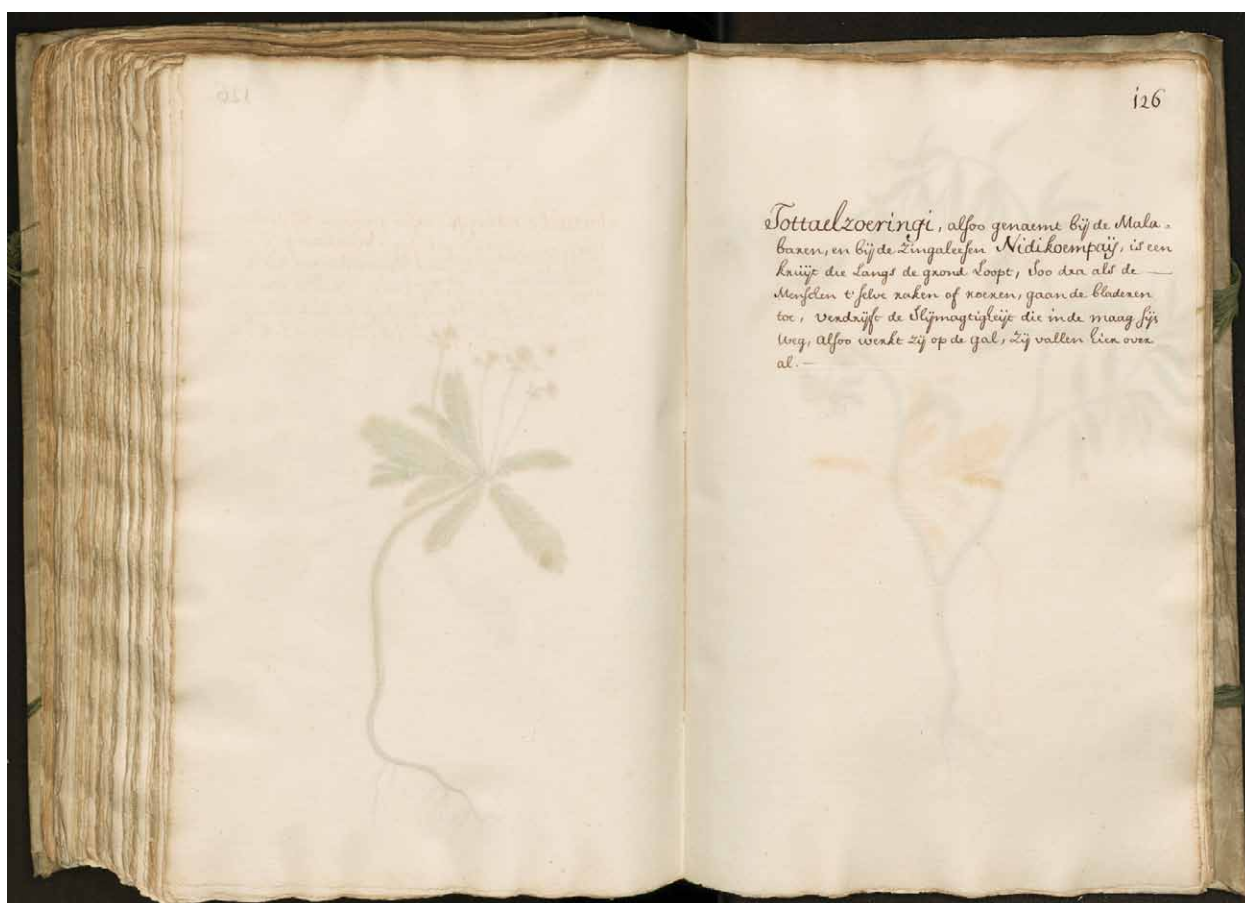 126
Tottaelzoeringi, alsoo genaemt bij de Mala-
baren, en bij de Zingaleesen Nidikoempaij, is een
kruijt die Langs de grond Loopt, Soo dra als de
Menschen t' selve raken of roeren, gaan de bladeren
toe, verdrijft de Slijmagtigheijt die in de maag sijs
weg, alsoo werkt zij op de gal, zij vallen hier over
al.